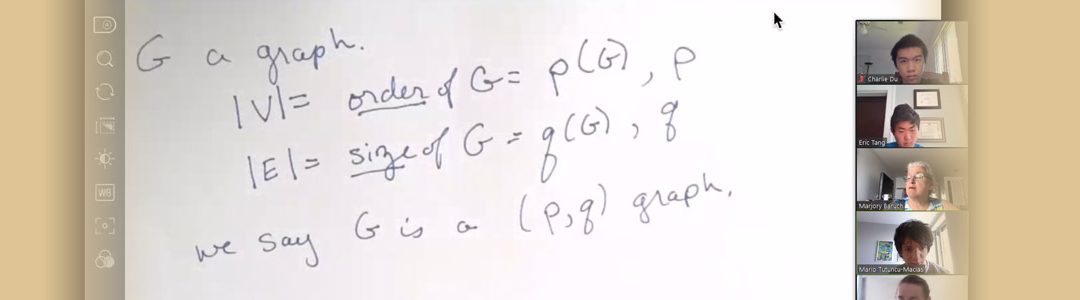 G a graph.
|V| = order of G = p(G), p
|E| = size of G = q(G), q
we say G is a (p,q) graph.
WB
Charlie Du
Eric Tang
Marjory Baruch
Mario Tutuncu-Macias